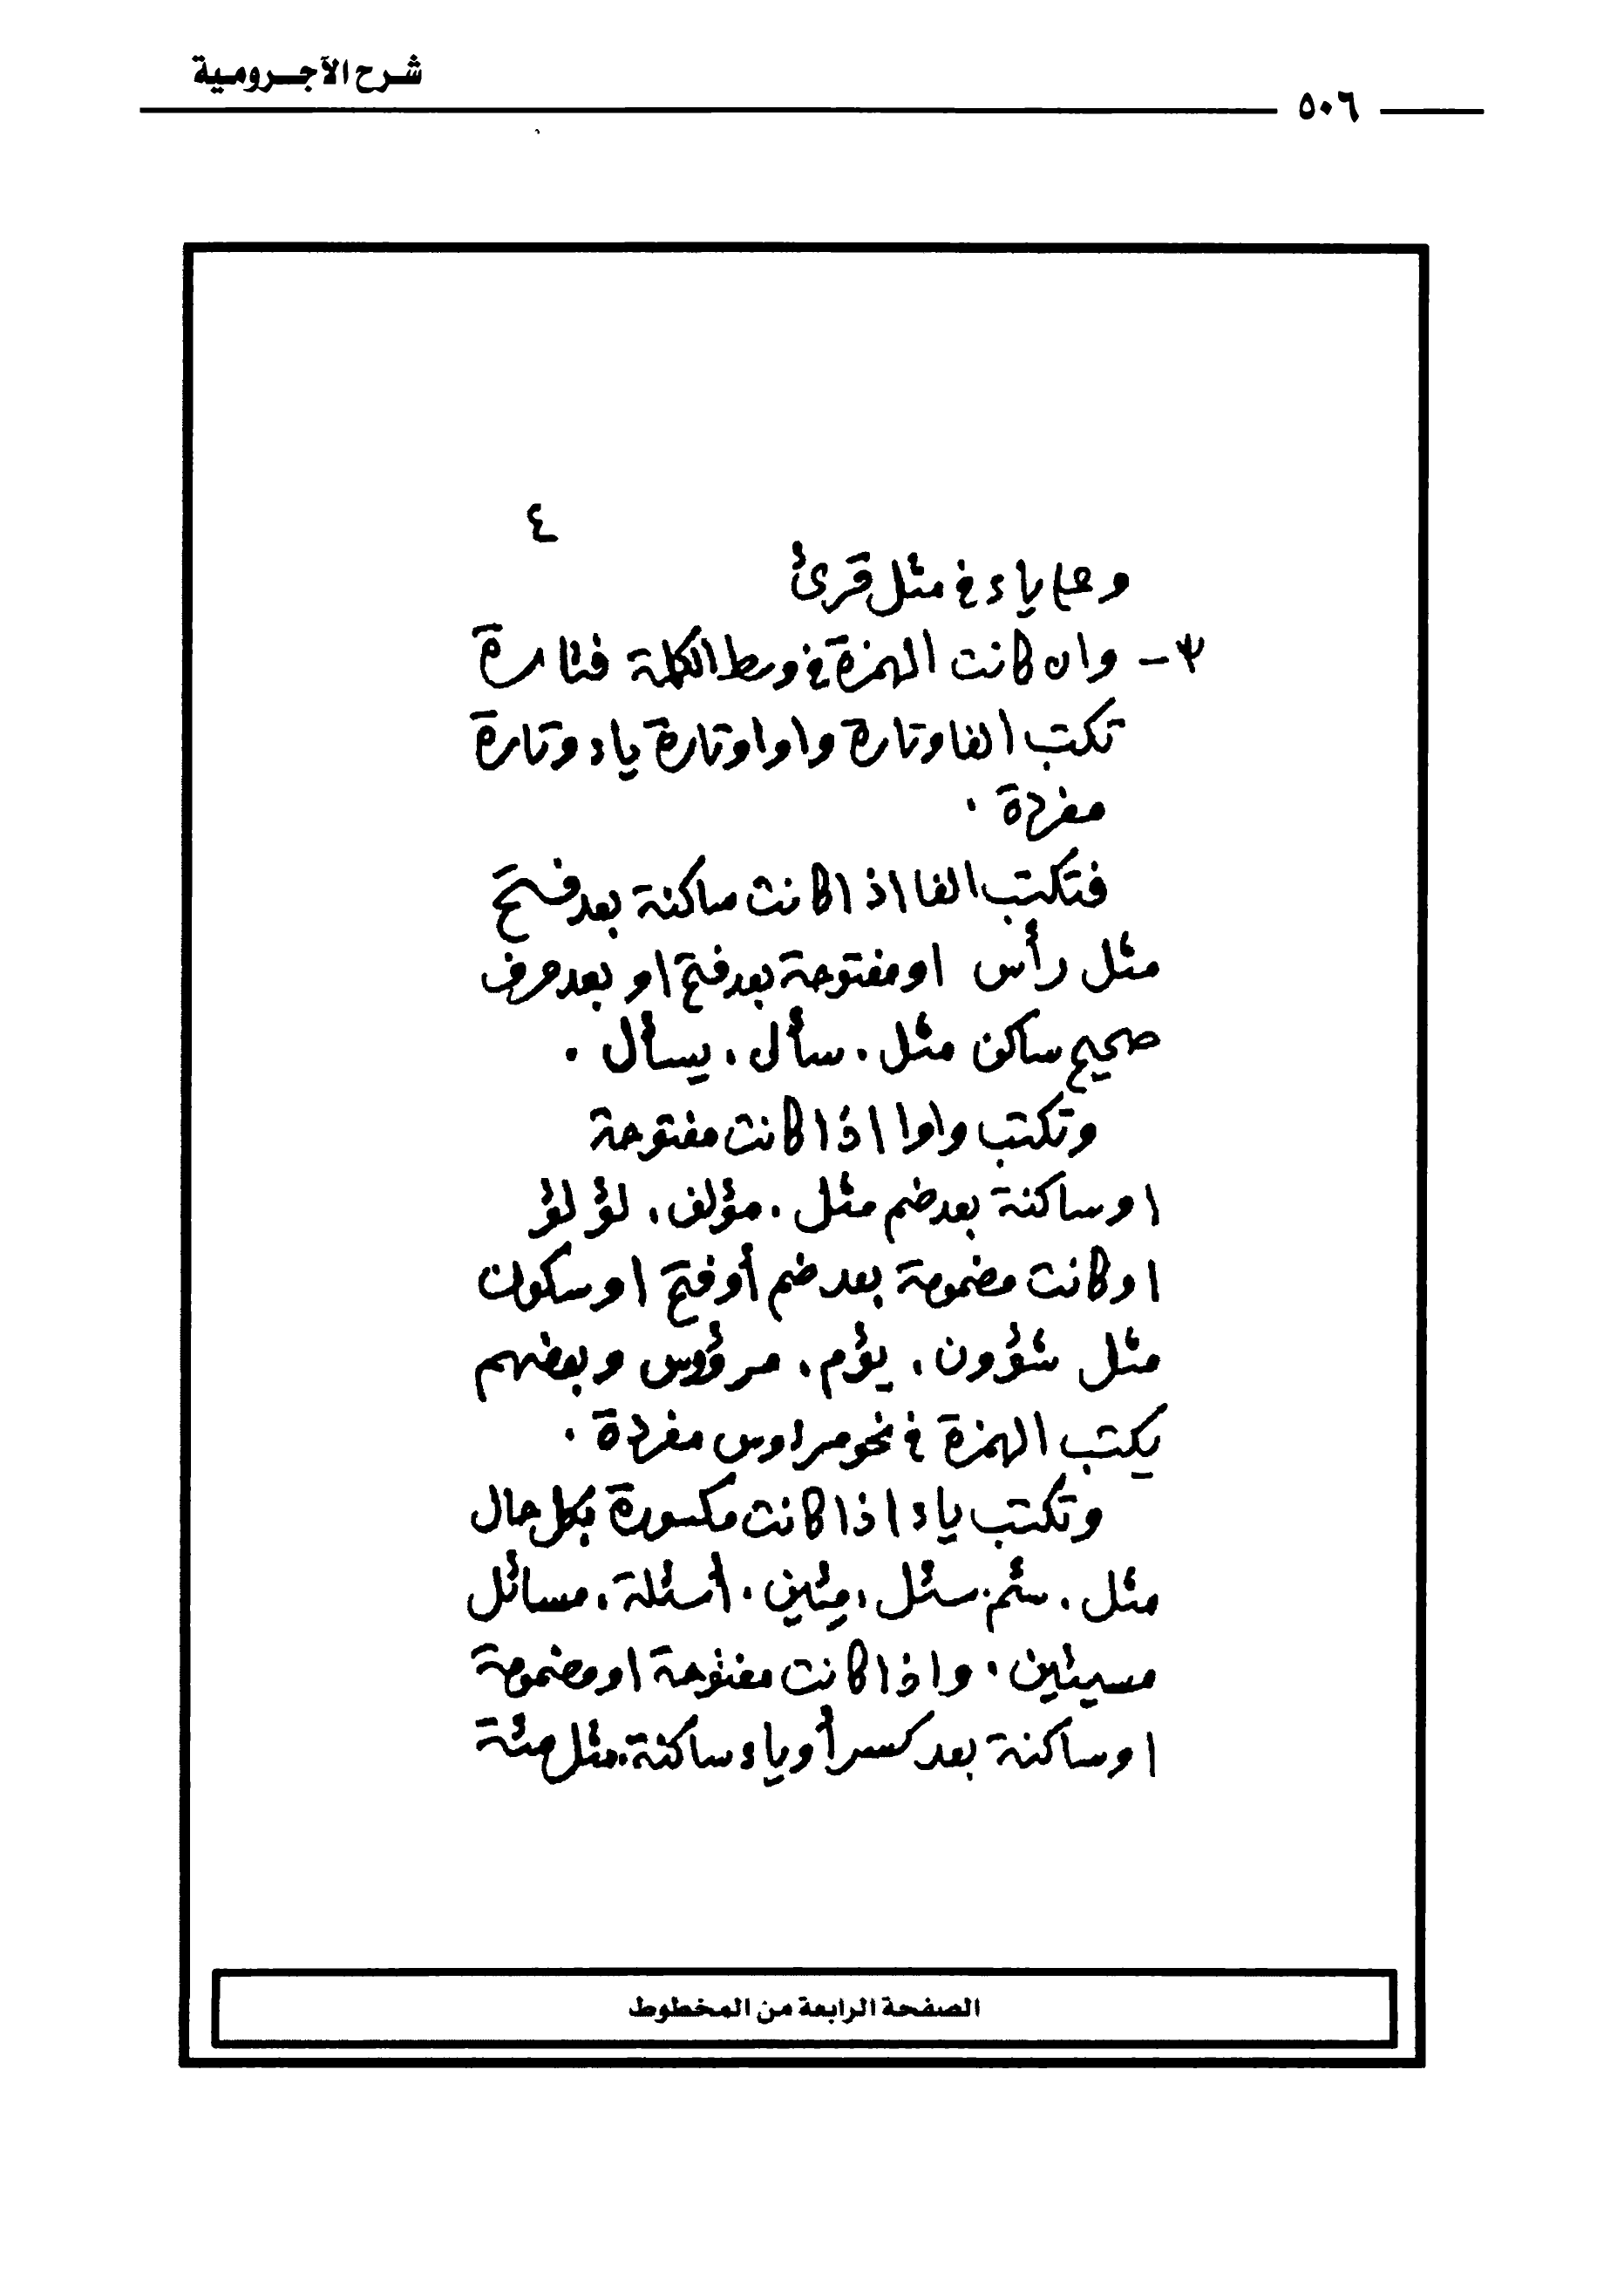 شرح الآجرومية
٥٠٦
٤
وعلى ياء في مثل قرئ
٣- وان كانت الهمزة في وسط الكلمة فتارة
تكتب الفا وتارة واوا وتارة ياء وتارة
مفردة.
فتكتب الفا اذا كانت ساكنة بعد فتح
مثل رأس او مفتوحة بعد فتح او بعد حرف
صحيح ساكن مثل، سأل، يسأل.
وتكتب واوا اذا كانت مفتوحة
او ساكنة بعد ضم مثل، مؤلف، لؤلؤ
او كانت مضمومة بعد ضم أو فتح او سكون
مثل شؤون، يؤم، مرؤوس وبعضهم
يكتب الهمزة في نحو مرءوس مفردة.
وتكتب ياء اذا كانت مكسورة بكل حال
مثل، سئم، سئل، مئين، أسئلة، مسائل
مسيئين. واذا كانت مفتوحة او مضمومة
او ساكنة بعد كسر أو ياء ساكنة، مثل مئة
الصفحة الرابعة من المخطوط